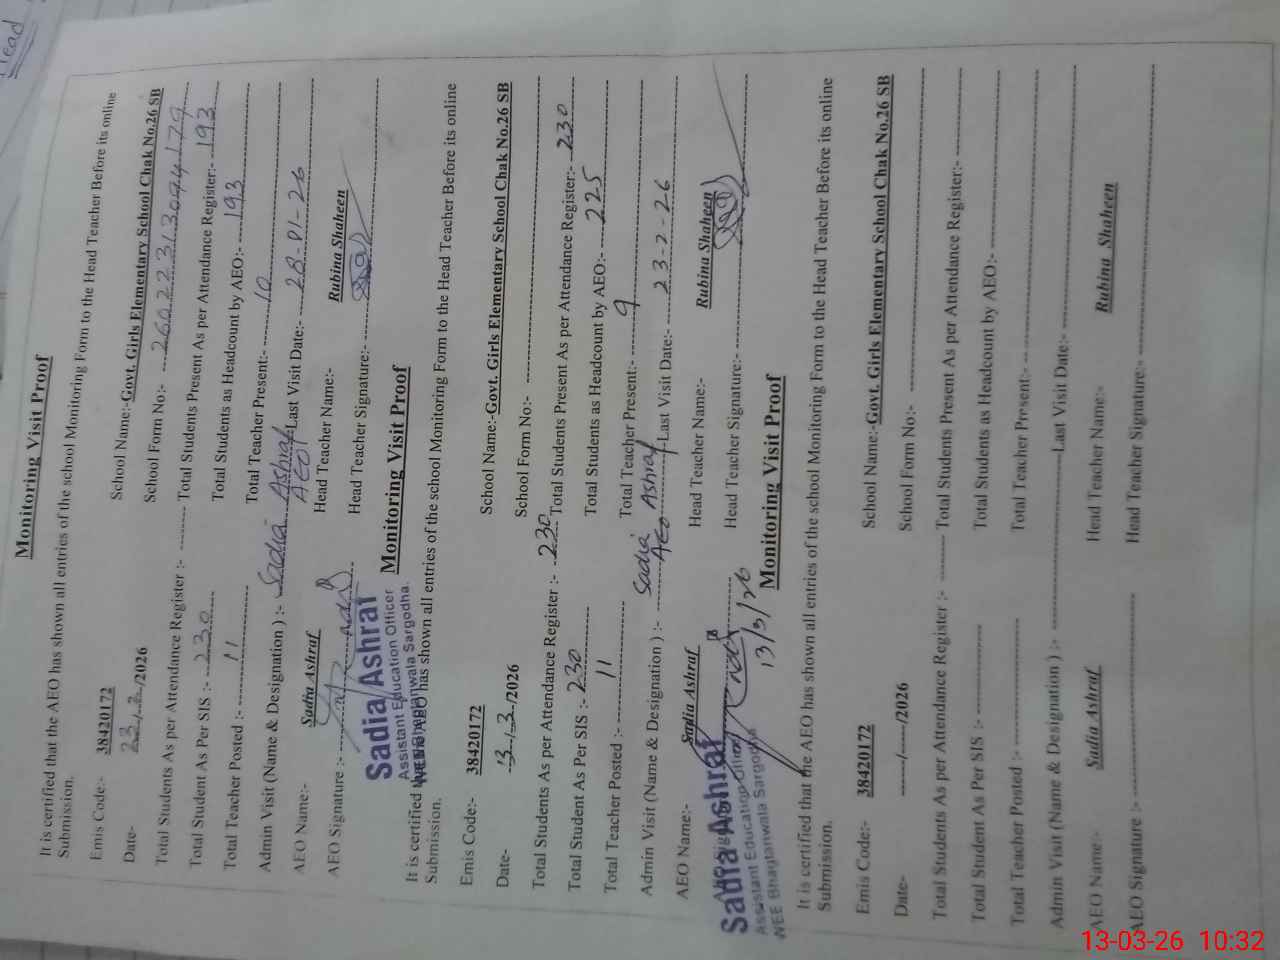 Head
Monitoring Visit Proof
It is certified that the AEO has shown all entries of the school Monitoring Form to the Head Teacher Before its online
Submission.
Emis Code:- 38420172 School Name:-Govt. Girls Elementary School Chak No.26 SB
Date- 23/2/2026 School Form No:- 26022313094179
Total Students As per Attendance Register :- Total Students Present As per Attendance Register:- 193
Total Student As Per SIS :- 230 Total Students as Headcount by AEO:- 193
Total Teacher Posted :- 11 Total Teacher Present:- 10
Admin Visit (Name & Designation ) :- Sadia Ashraf AEO Last Visit Date:- 28-01-26
AEO Name:- Sadia Ashraf Head Teacher Name:- Rubina Shaheen
AEO Signature :- Head Teacher Signature:-
Sadia Ashraf
Assistant Education Officer
WEE Bhagtanwala Sargodha.
Monitoring Visit Proof
It is certified AEO has shown all entries of the school Monitoring Form to the Head Teacher Before its online
Submission.
Emis Code:- 38420172 School Name:-Govt. Girls Elementary School Chak No.26 SB
Date- 13/3/2026 School Form No:-
Total Students As per Attendance Register :- 230 Total Students Present As per Attendance Register:- 230
Total Student As Per SIS :- 230 Total Students as Headcount by AEO:- 225
Total Teacher Posted :- 11 Total Teacher Present:- 9
Admin Visit (Name & Designation ) :- Sadia Ashraf AEO Last Visit Date:- 23-2-26
AEO Name:- Sadia Ashraf Head Teacher Name:- Rubina Shaheen
Head Teacher Signature:-
13/3/26
Sadia Ashraf
Assistant Education Officer
WEE Bhagtanwala Sargodha
Monitoring Visit Proof
It is certified that the AEO has shown all entries of the school Monitoring Form to the Head Teacher Before its online
Submission.
Emis Code:- 38420172 School Name:-Govt. Girls Elementary School Chak No.26 SB
Date- /2026 School Form No:-
Total Students As per Attendance Register :- Total Students Present As per Attendance Register:-
Total Student As Per SIS :- Total Students as Headcount by AEO:-
Total Teacher Posted :- Total Teacher Present:-
Admin Visit (Name & Designation ) :- Last Visit Date:-
AEO Name:- Sadia Ashraf Head Teacher Name:- Rubina Shaheen
AEO Signature :- Head Teacher Signature:-
13-03-26 10:32